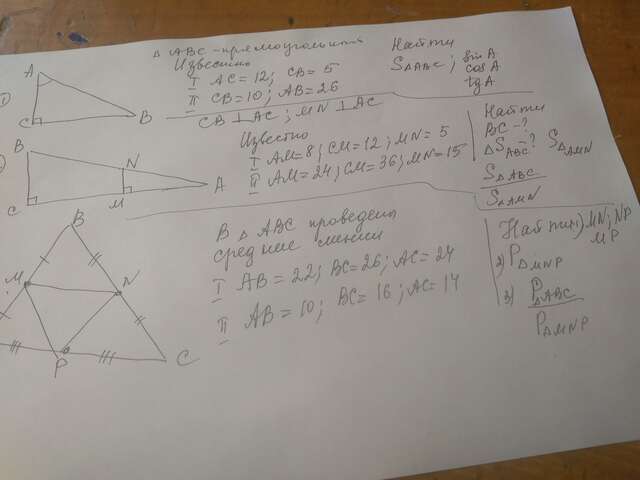 Δ ABC - прямоугольный
Известно
I AC = 12; CB = 5
II CB = 10; AB = 26
Найти
SΔABC; sin A
cos A
tg A
A
C
B
1)
CB ⊥ AC; MN ⊥ AC
Известно
I AM = 8; CM = 12; MN = 5
II AM = 24; CM = 36; MN = 15
Найти
BC - ?
ΔSABC - ? SΔAMN
SΔABC
SΔAMN
B
N
A
C
M
В Δ ABC проведены
средние линии
I AB = 22; BC = 26; AC = 24
II AB = 10; BC = 16; AC = 14
Найти 1) MN; NP
MP
2) PΔMNP
3) PΔABC
PΔMNP
B
M
N
P
C